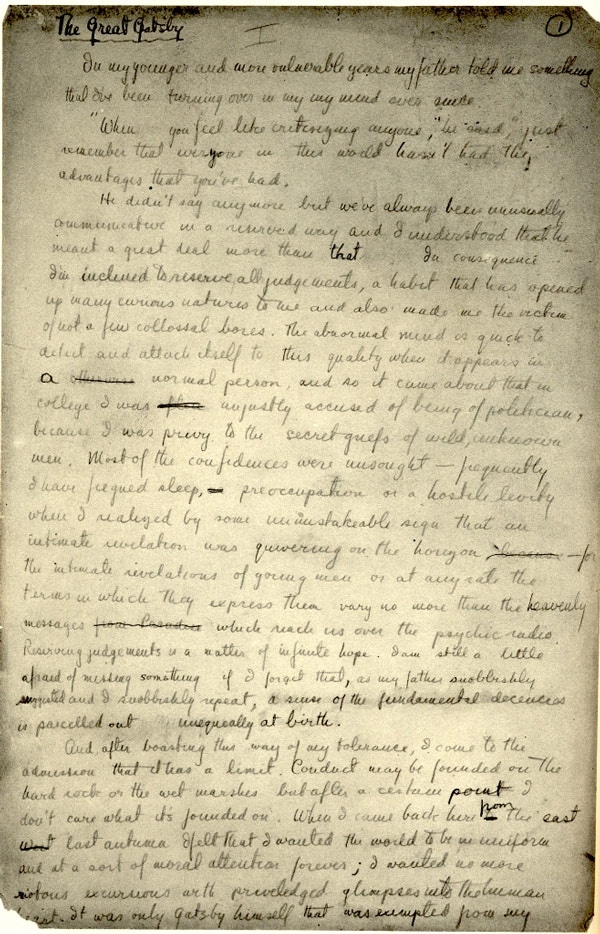 The Great Gatsby
I
1
In my younger and more vulnerable years my father told me something
that I've been turning over in my my mind ever since.
"When you feel like critisizing anyone," he said, "just
remember that everyone in this world hasn't had the
advantages that you've had.
He didn't say any more but we've always been unusually
communicative in a reserved way and I understood that he
meant a great deal more than that. In consequence
I'm inclined to reserve all judgements, a habit that has opened
up many curious natures to me and also made me the victim
of not a few collossal bores. The abnormal mind is quick to
detect and attach itself to this quality when it appears in
a otherwise normal person, and so it came about that in
college I was unjustly accused of being of politician,
because I was privy to the secret griefs of wild, unknown
men. Most of the confidences were unsought — frequently
I have fiegned sleep, preoccupation or a hostile levity
when I realized by some unmistakeable sign that an
intimate revelation was quivering on the horizon — for
the intimate revelations of young men or at any rate the
terms in which they express them vary no more than the heavenly
messages from Pasadena which reach us over the psychic radio.
Reserving judgements is a matter of infinite hope. I am still a little
afraid of missing something if I forget that, as my father snobbishly
suggested and I snobbishly repeat, a sense of the fundamental decencies
is parcelled out unequally at birth.
And, after boasting this way of my tolerance, I come to the
admission that it has a limit. Conduct may be founded on the
hard rock or the wet marshes but after a certain point I
don't care what it's founded on. When I came back here from the east
west last autumn I felt that I wanted the world to be in uniform
and at a sort of moral attention forever; I wanted no more
riotous excursions with priviledged glimpses into the human
heart. It was only Gatsby himself that was exempted from my